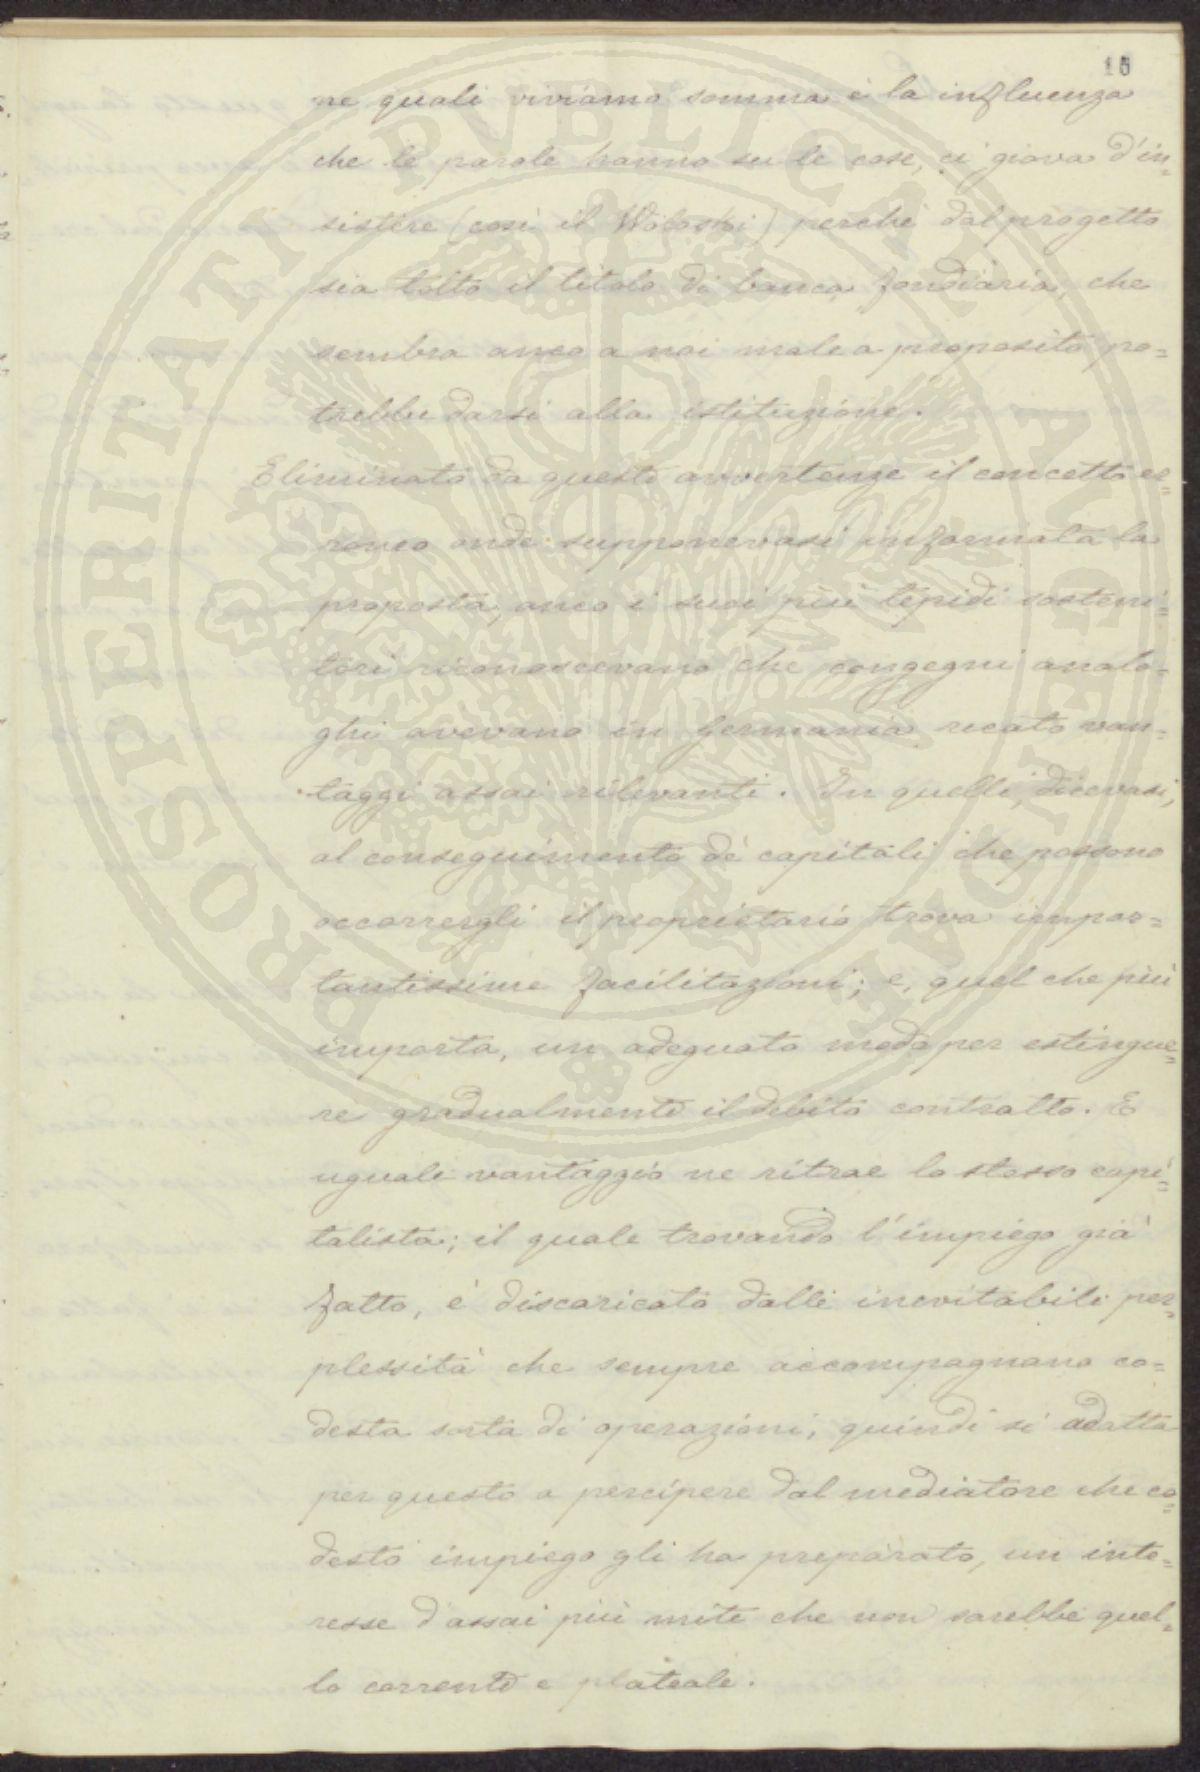 15
ne quali viviamo somma è la influenza
che le parole hanno su le cose, ci giova d'in=
sistere (così il Woloski) perchè dal progetto
sia tolto il titolo di banca fondiaria, che
sembra anco a noi male a proposito po=
trebbe darsi alla istituzione.
Eliminato da queste avvertenze il concetto er=
roneo onde supponevasi informata la
proposta, anco i suoi più tepidi sosteni=
tori riconoscevano che congegni analo=
ghi avevano in Germania recato van=
taggi assai rilevanti. In quelli, dicevasi,
al conseguimento de' capitali che possono
occorrergli il proprietario trova impor=
tantissime facilitazioni; e, quel che più
importa, un adeguato modo per estingue=
re gradualmente il debito contratto. E
uguale vantaggio ne ritrae lo stesso capi=
talista; il quale trovando l'impiego già
fatto, è discaricato dalle inevitabili per=
plessità che sempre accompagnano co=
desta sorta di operazioni, quindi si adatta
per questo a percipere dal mediatore che co=
desto impiego gli ha preparato, un inte=
resse d'assai più mite che non sarebbe quel=
lo corrente e plateale.
PROSPERITATI PVBLICAE AVGENDAE